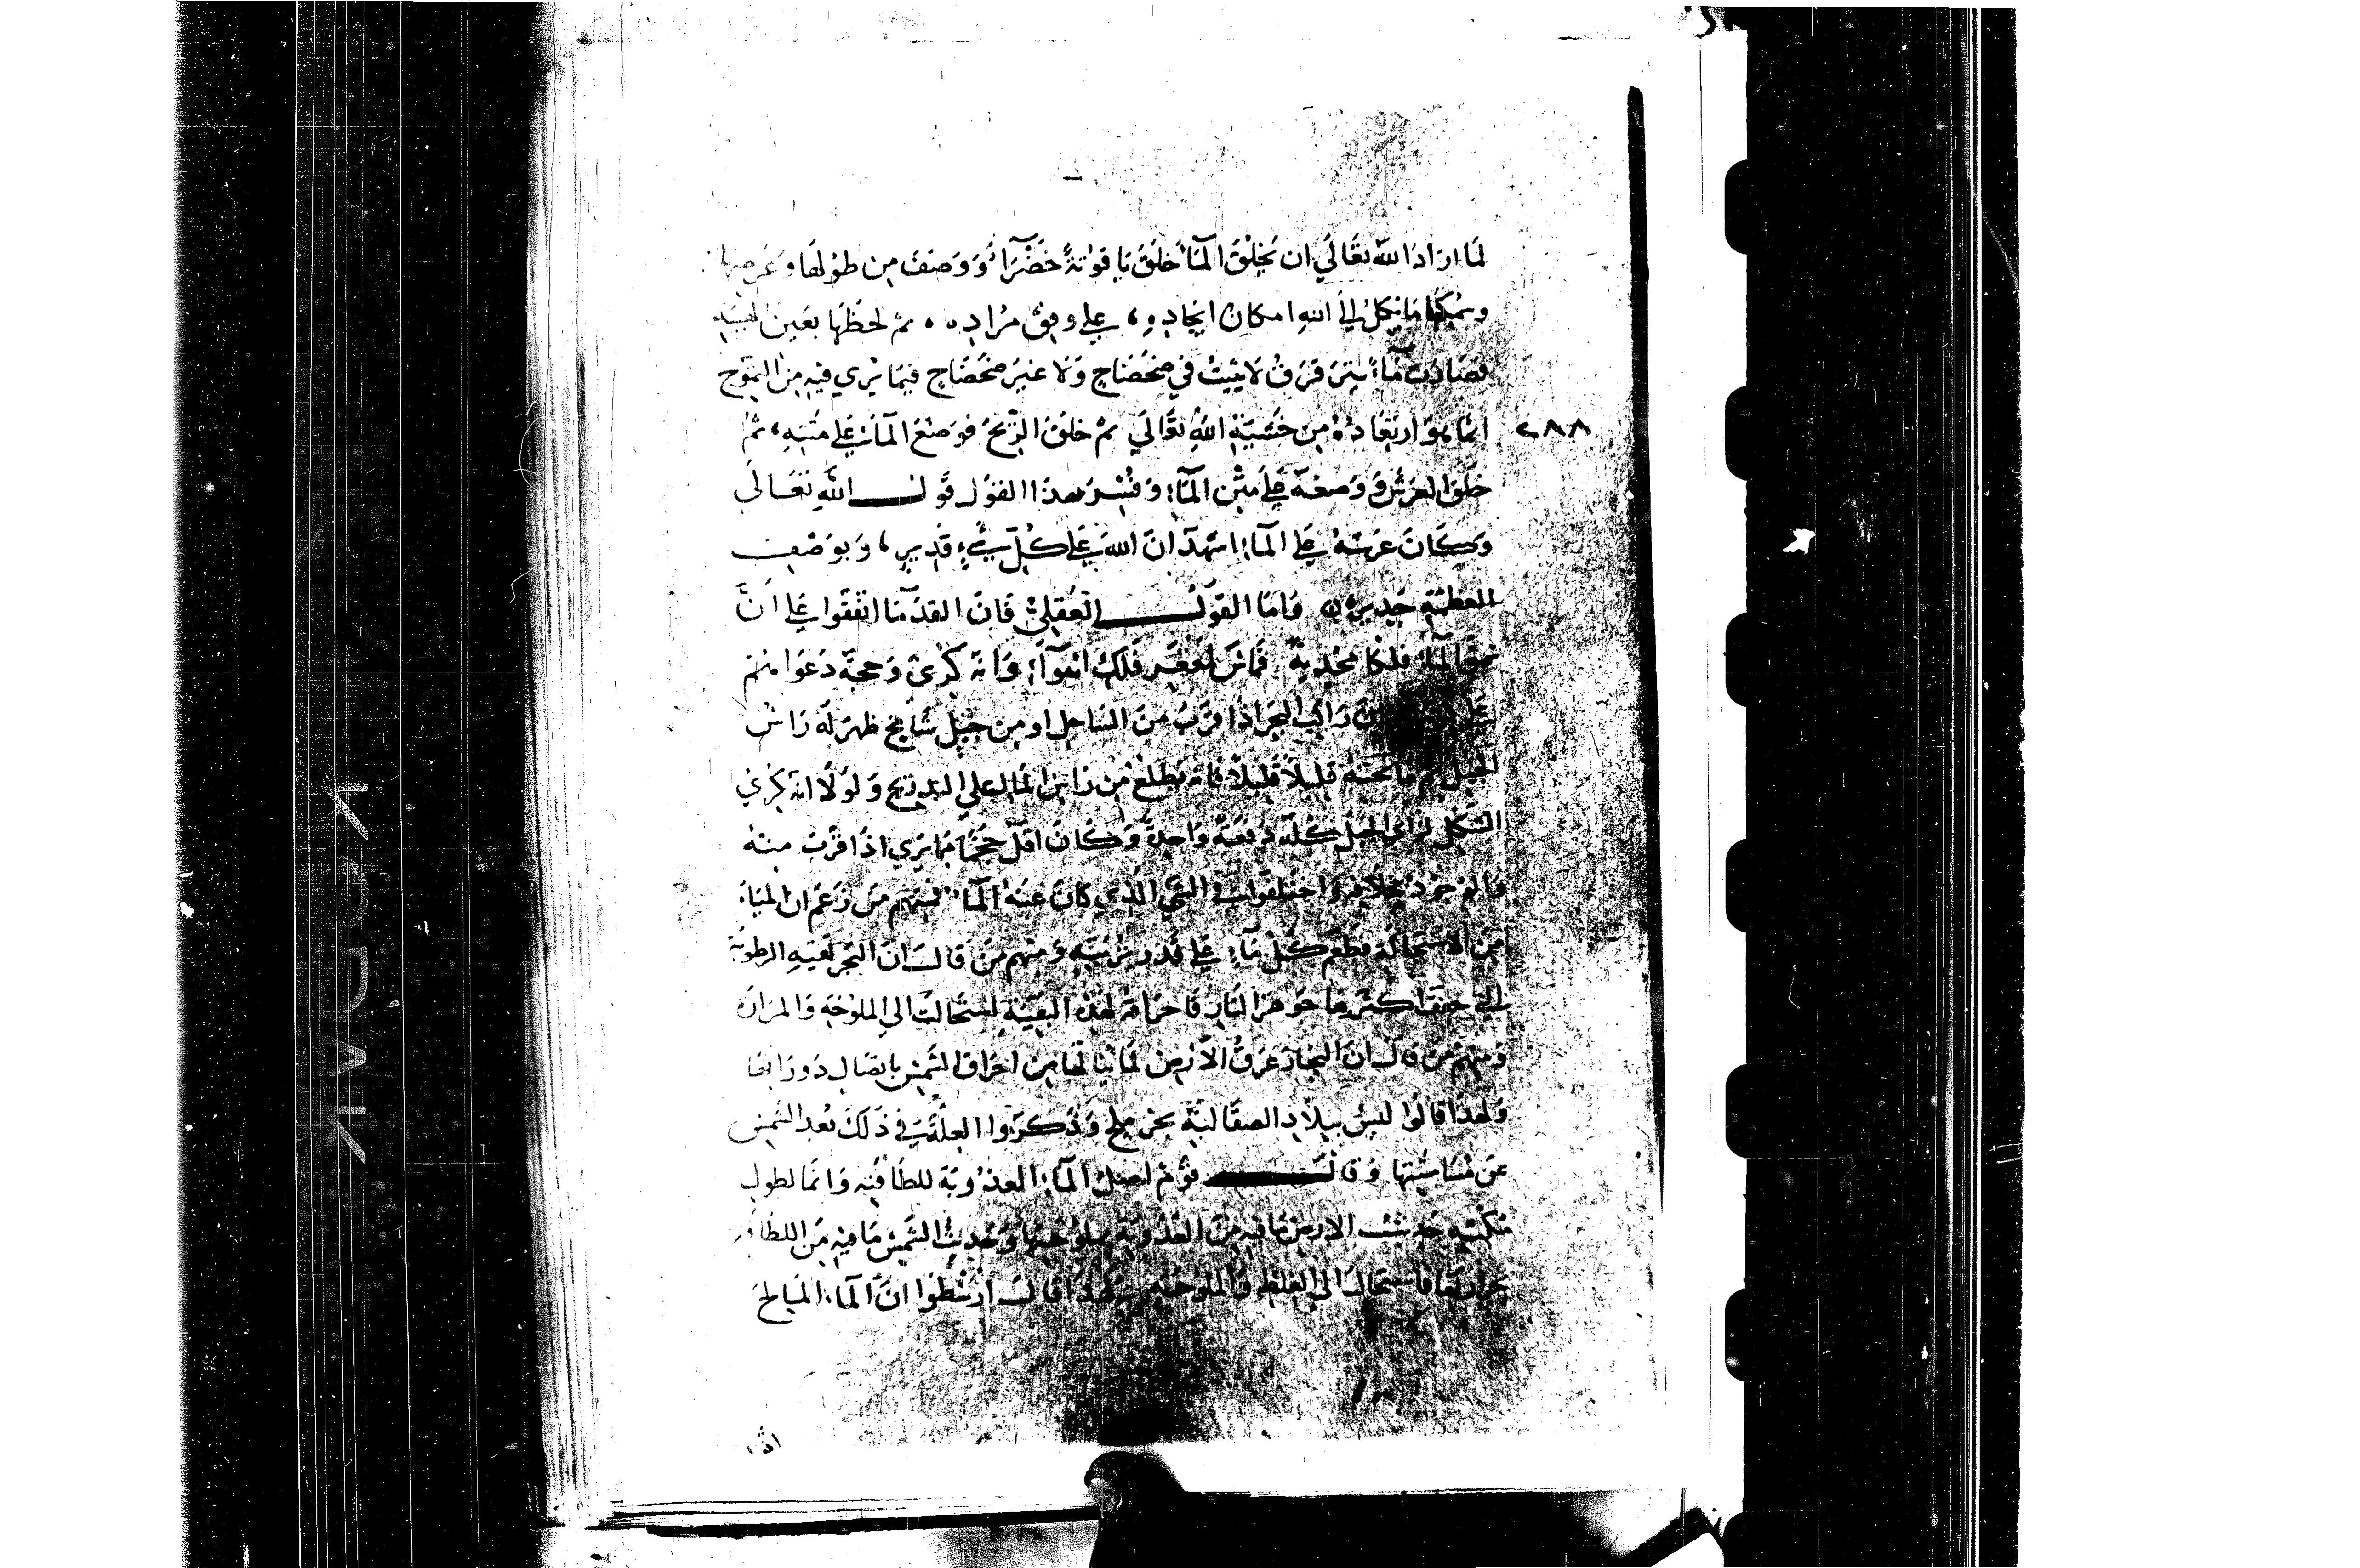 لَما اراد الله تعَالَي ان يخلق المآء خلق ياقوتة خضرآء وَوَصَف من طولها وعَرضها
وسمكها ما يكل الى الله امكان ايجاده، على وفق مراده، ثم لحظها بعَين
فصارت مآء يترقرق لا يثبت في ضحضاح وَلا غير ضحضاح فيما يري فيه من التموج
٢٨٨ انما هو ارتعاده من خشية الله تعَالي ثم خلق الريح فوضع المآء على متنه، ثم
خلق العرش ووضعه على متن المآء وفسر بهذا القول قول الله تعَالَى
وَكَانَ عَرشه على المآء اشهد ان الله على كل شيء قدير، وبوصف
العظمة جدير وَاما القول العقلي فان القدمآ اتفقوا على ان
فلكا فلك الهوآء وانه كري وحجة دعوا منهم
راكب البحر اذا قرب من الساحل او من جبل شامخ ظهر له رأس
الجبل ما تحته قليلا قليلا على التدريج وَلولا انه كري
الشكل لراى الجبل كله دفعة واحدة وكان اقل حجما مما يري اذا قرب منه
والموجود بخلافه واختلفوا في الشي الذي كان عنه المآء فمنهم من زعم ان المياه
من الاستحالة فطعم كل مآء على قدر تربته ومنهم من قال ان البحر بقية الرطوبة
التي جفف اكثرها جوهر النار فاحراقه لهذه البقية استحالت الي الملوحة والمرارة
ومنهم من قال ان البحار عرق الارض لما ينالها من احراق الشمس باتصال دورانها
ولهذا قالوا ليس ببلاد الصقالبة بحر ملح وذكروا العلة في ذلك بعد الشمس
عن مسامتتها وقال قوم اصل المآء العذوبة واللطافة وانما لطول
مكثه جذبت الارض ما فيه من العذوبة لملوحتها وجذبت الشمس ما فيه من اللطافة
بحرارتها فاستحال الي الغلظ والملوحة ولهذا قال ارسطوا ان المآء المالح
KODAK